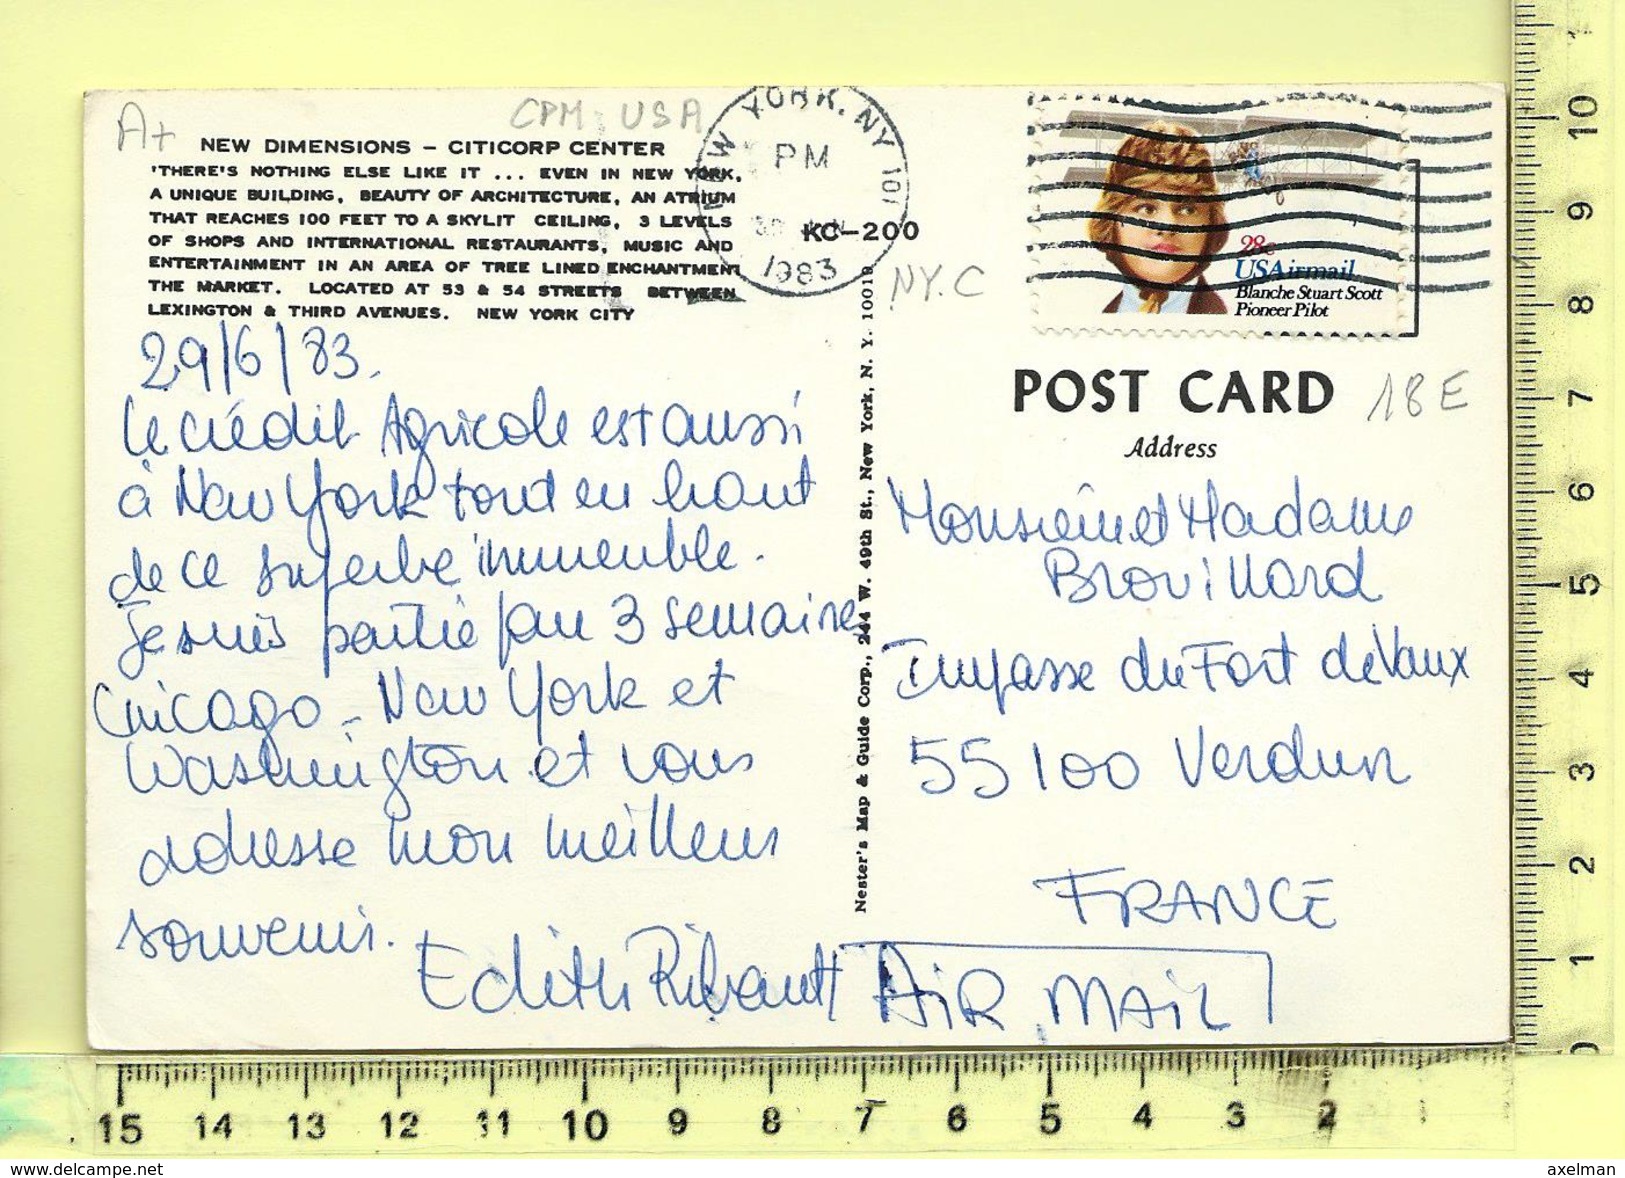 A+
CPM USA
NEW DIMENSIONS – CITICORP CENTER
'THERE'S NOTHING ELSE LIKE IT ... EVEN IN NEW YORK.
A UNIQUE BUILDING, BEAUTY OF ARCHITECTURE, AN ATRIUM
THAT REACHES 100 FEET TO A SKYLIT CEILING, 3 LEVELS
OF SHOPS AND INTERNATIONAL RESTAURANTS, MUSIC AND
ENTERTAINMENT IN AN AREA OF TREE LINED ENCHANTMENT
THE MARKET. LOCATED AT 53 & 54 STREETS BETWEEN
LEXINGTON & THIRD AVENUES. NEW YORK CITY
29/6/83.
Le Crédit Agricole est aussi
à New York tout en haut
de ce superbe immeuble.
Je suis partie pour 3 semaines
Chicago - New York et
Washington et vous
adresse mon meilleur
souvenir.
Edith Ribault
W YORK, NY 101
PM
1983
KC-200
N.Y.C
28c
USAirmail
Blanche Stuart Scott
Pioneer Pilot
Nester's Map & Guide Corp., 244 W. 49th St., New York, N. Y. 10019
POST CARD
18E
Address
Monsieur et Madame
Brouillard
Impasse du Fort de Vaux
55100 Verdun
FRANCE
AIR MAIL
10
9
8
7
6
5
4
3
2
1
15 14 13 12 11 10 9 8 7 6 5 4 3 2
www.delcampe.net
axelman